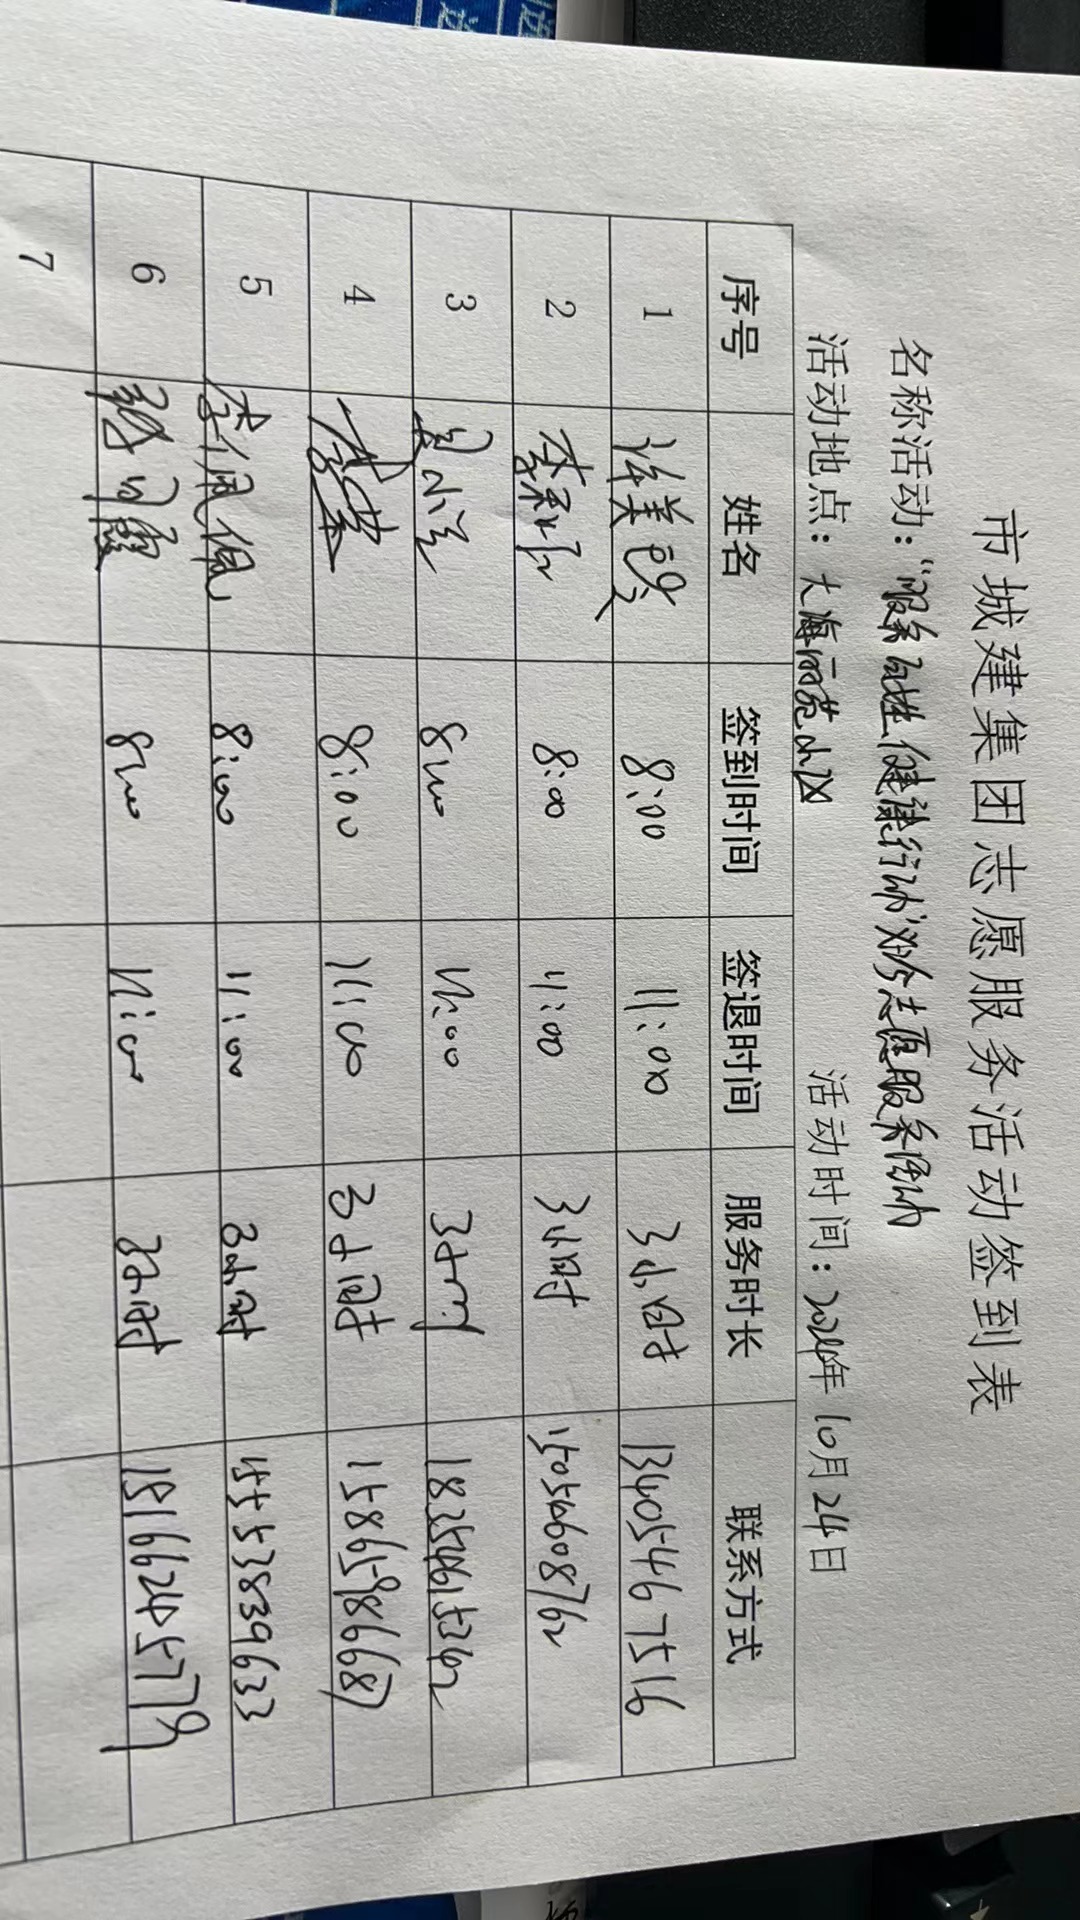 市城建集团志愿服务活动签到表
名称活动：“服务百姓健康行动”义诊志愿服务活动
活动地点：大海丽苑小区 活动时间：2024年10月24日
序号 姓名 签到时间 签退时间 服务时长 联系方式
1 8:00 11:00 3小时 13405467516
2 8:00 11:00 3小时 15054608762
3 8:00 11:00 3小时 18254615262
4 8:00 11:00 3小时 15865986687
5 李佩佩 8:00 11:00 3小时 15553839633
6 8:00 11:00 3小时 18166245779
7